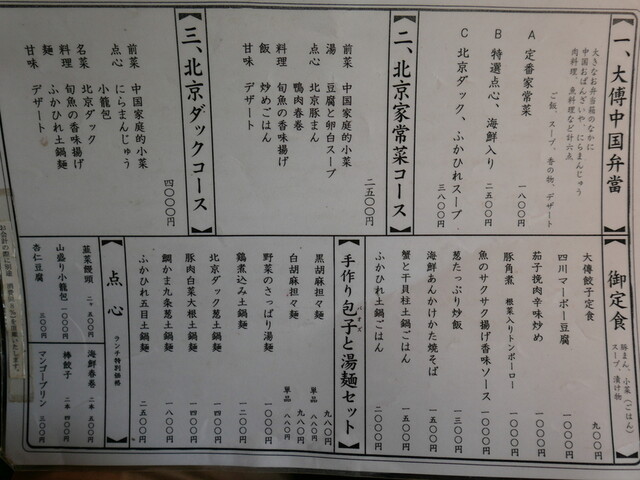 一、大傳中国弁當
大きなお弁当箱のなかに
中国おばんざいや、にらまんじゅう
肉料理、魚料理など計六点
ご飯、スープ、香の物、デザート
A 定番家常菜 一八〇〇円
B 特選点心、海鮮入り 二五〇〇円
C 北京ダック、ふかひれスープ 三八〇〇円
二、北京家常菜コース 二五〇〇円
前菜 中国家庭的小菜
湯 豆腐と卵白スープ
点心 北京豚まん
鴨肉春巻
料理 旬魚の香味揚げ
飯 炒めごはん
甘味 デザート
三、北京ダックコース 四〇〇〇円
前菜 中国家庭的小菜
点心 にらまんじゅう
小籠包
名菜 北京ダック
料理 旬魚の香味揚げ
麺 ふかひれ土鍋麺
甘味 デザート
御定食
豚まん、小菜(ごはん)
スープ、漬け物
大傳餃子定食 九〇〇円
四川マーボー豆腐 一〇〇〇円
茄子挽肉辛味炒め 一〇〇〇円
豚角煮 根菜入りトンポーロー 一〇〇〇円
魚のサクサク揚げ香味ソース 一〇〇〇円
葱たっぷり炒飯 一〇〇〇円
海鮮あんかけかた焼そば 一三〇〇円
蟹と干貝柱土鍋ごはん 一五〇〇円
ふかひれ土鍋ごはん 二〇〇〇円
手作り包子と湯麺セット
パオズ
黒胡麻担々麺 九八〇円
単品 八八〇円
白胡麻担々麺 九八〇円
単品 八八〇円
野菜のさっぱり湯麺 一〇〇〇円
鶏煮込み土鍋麺 一二〇〇円
北京ダック葱土鍋麺 一四〇〇円
豚肉白菜大根土鍋麺 一四〇〇円
鯛かま九条葱土鍋麺 一八〇〇円
ふかひれ五目土鍋麺 二五〇〇円
点心 ランチ特別価格
韮菜饅頭 二ヶ 五〇〇円
山盛り小籠包 一〇〇〇円
杏仁豆腐 三〇〇円
海鮮春巻 二本 五〇〇円
棒餃子 二本 四〇〇円
マンゴープリン 三〇〇円
お会計の際に別途